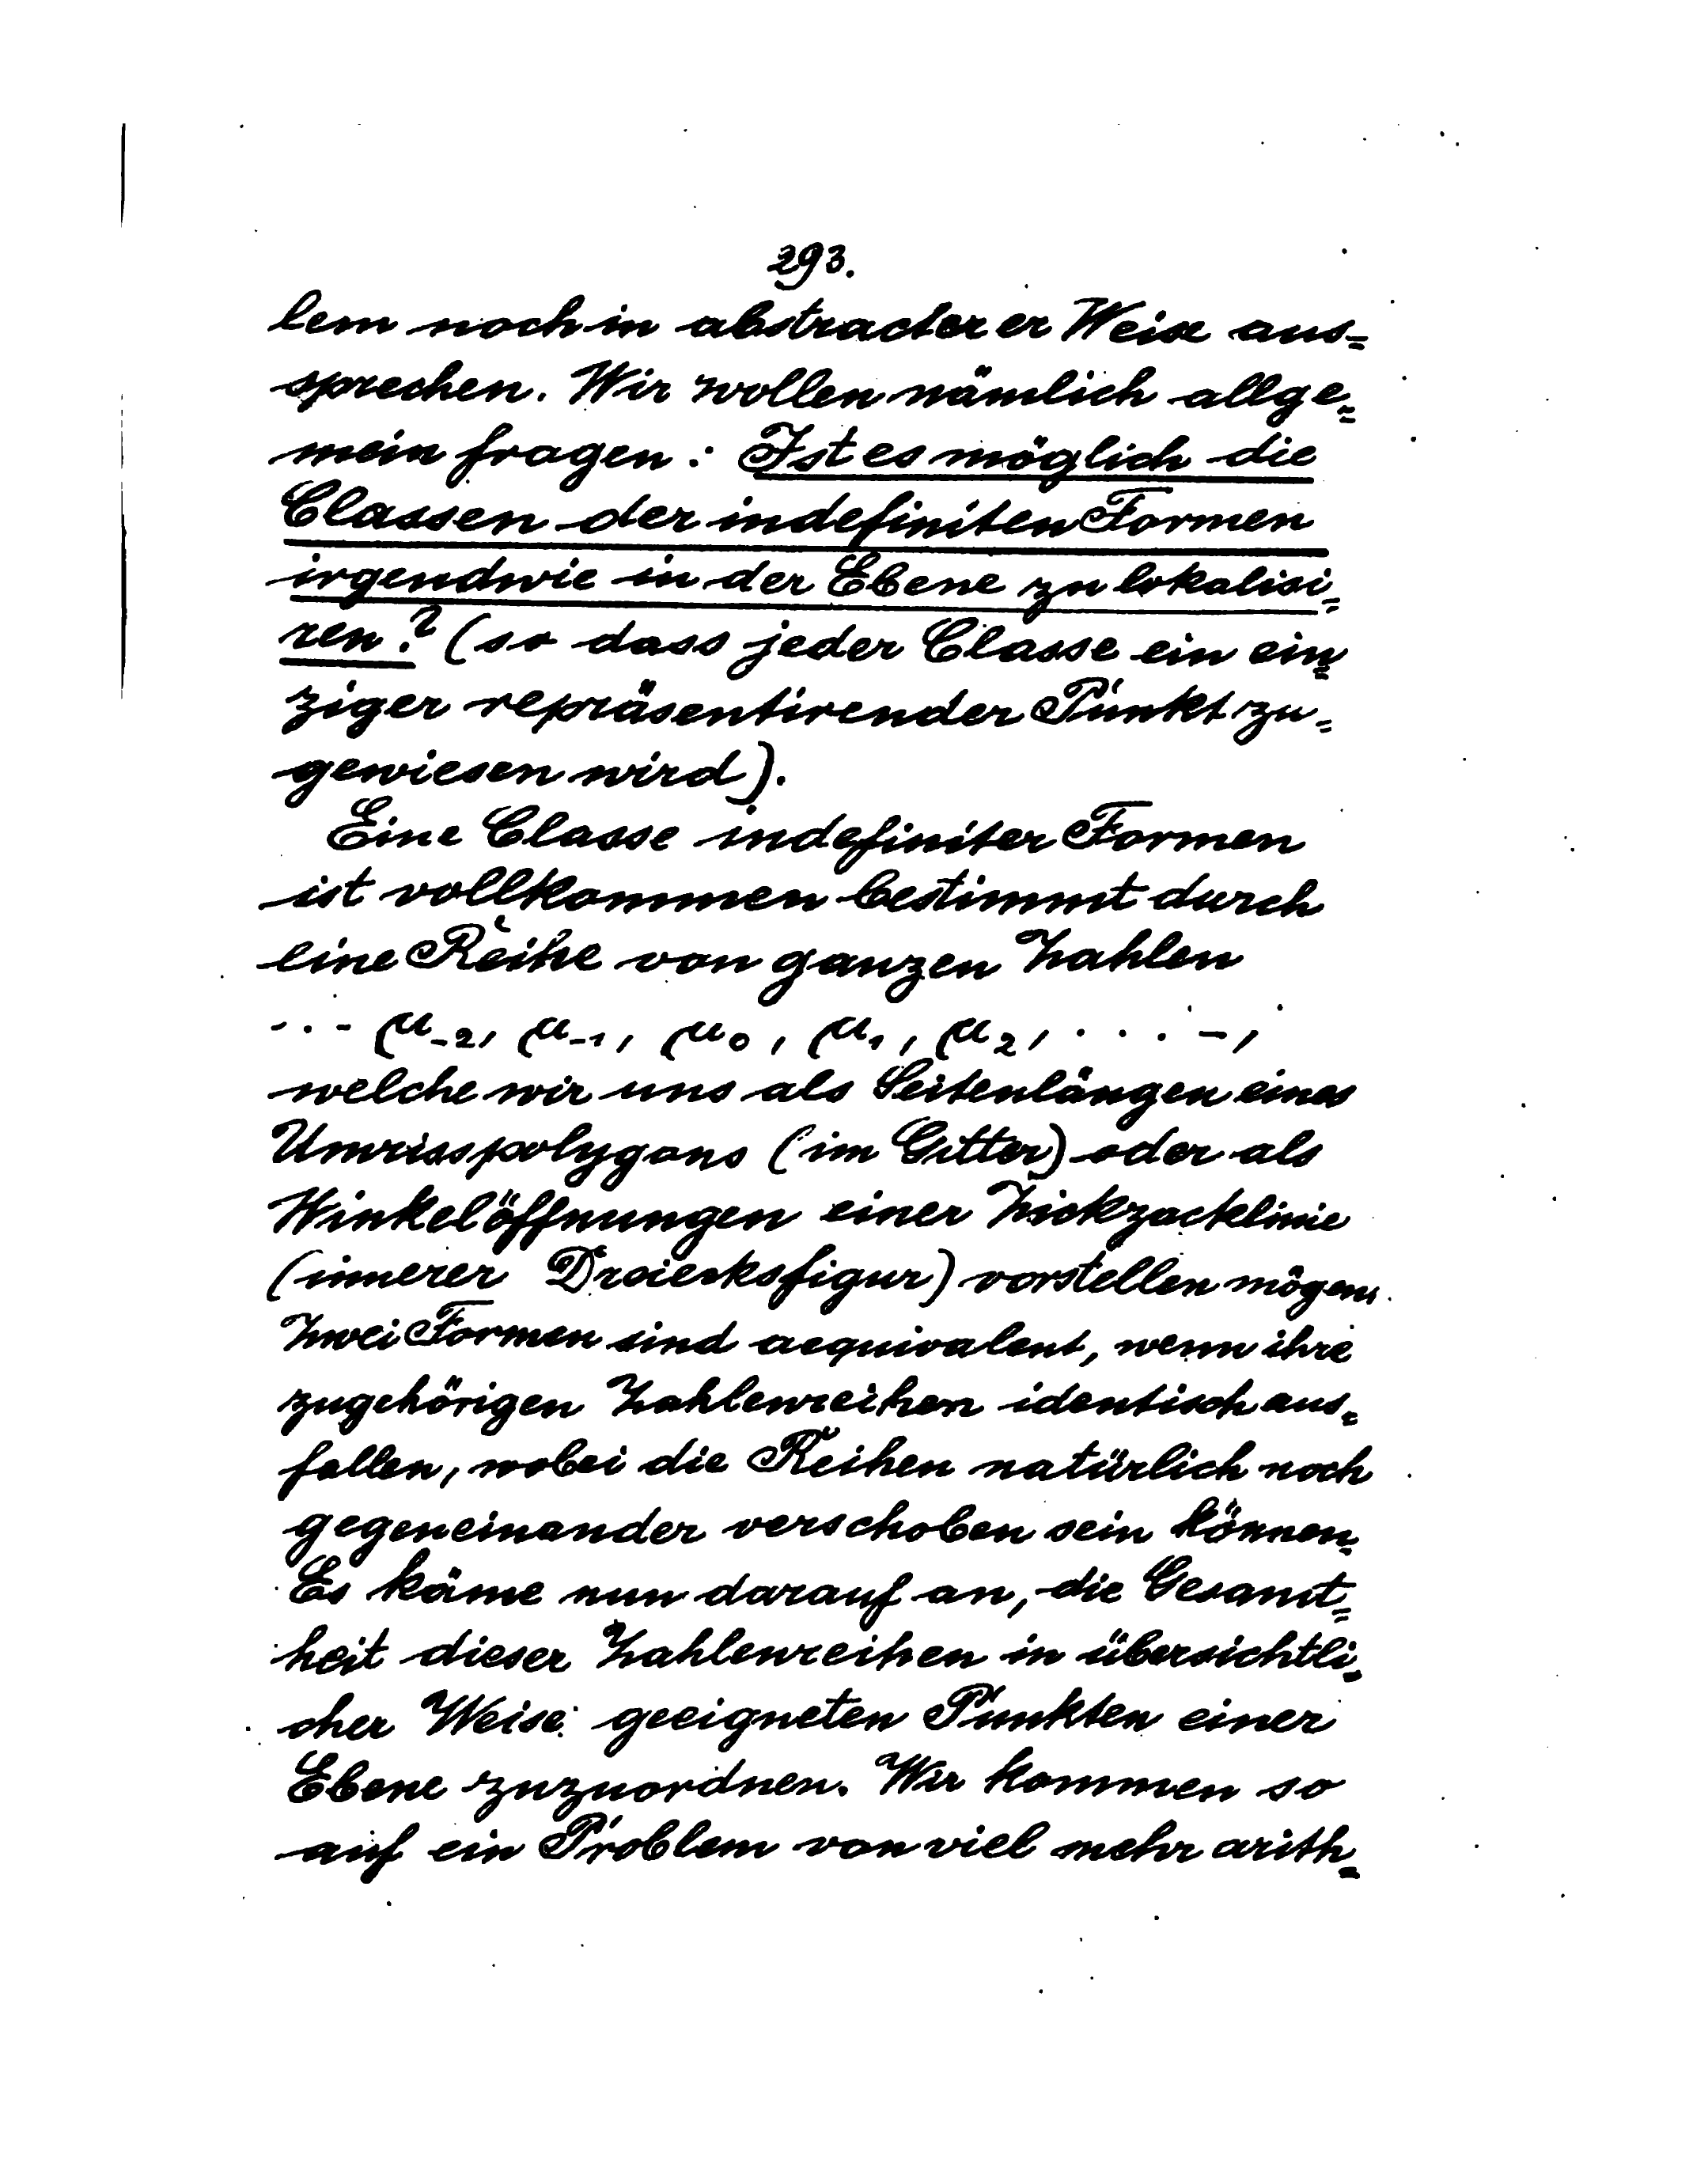 293.
lem noch in abstracterer Weise aus=
sprechen. Wir wollen nämlich allge=
mein fragen: Ist es möglich die
Classen der indefiniten Formen
irgendwie in der Ebene zu lokalisi=
ren? (so dass jeder Classe ein ein=
ziger repräsentirender Punkt zu=
gewiesen wird).
Eine Classe indefiniter Formen
ist vollkommen bestimmt durch
eine Reihe von ganzen Zahlen
... μ₋₂, μ₋₁, μ₀, μ₁, μ₂, ....,
welche wir uns als Seitenlängen eines
Umrisspolygons (im Gitter) oder als
Winkelöffnungen einer Zickzacklinie
(innerer Dreiecksfigur) vorstellen mögen.
Zwei Formen sind aequivalent, wenn ihre
zugehörigen Zahlenreihen identisch aus=
fallen, wobei die Reihen natürlich noch
gegeneinander verschoben sein können.
Es käme nun darauf an, die Gesamt=
heit dieser Zahlenreihen in übersichtli=
cher Weise geeigneten Punkten einer
Ebene zuzuordnen. Wir kommen so
auf ein Problem von viel mehr arith=